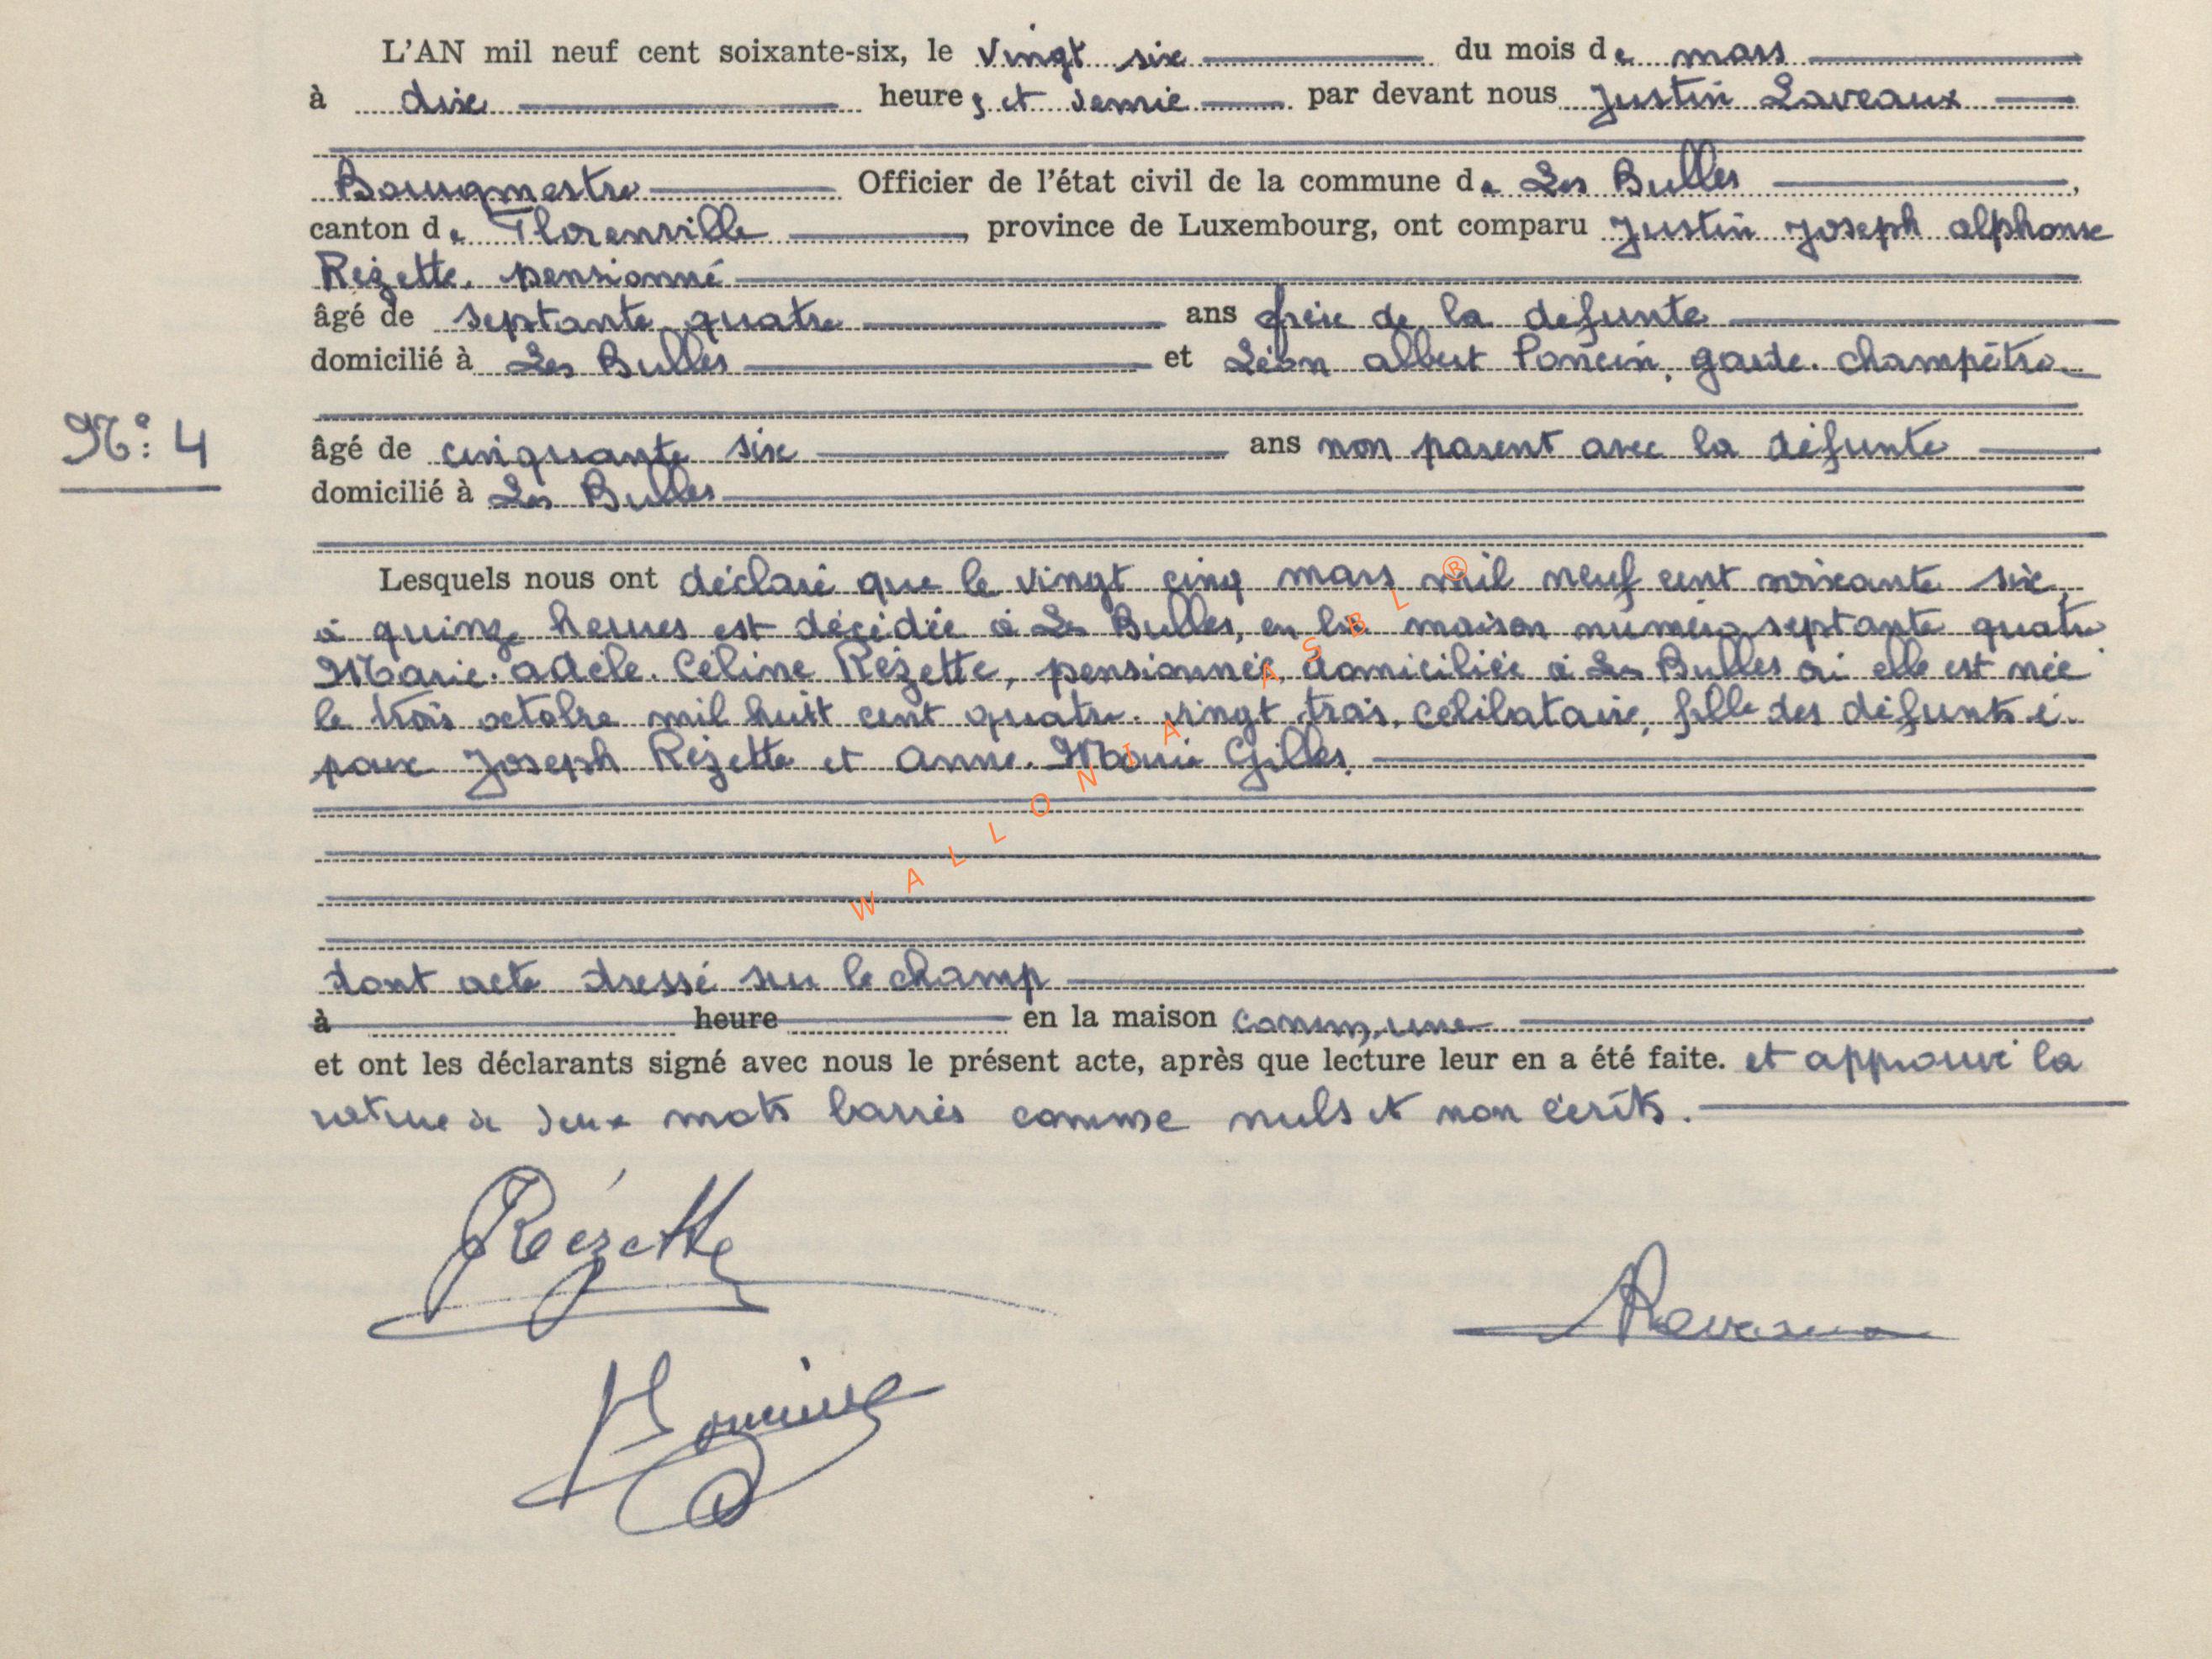 L'AN mil neuf cent soixante-six, le vingt six du mois de mars
à dix heures et demie par devant nous Justin Laveaux
Bourgmestre Officier de l'état civil de la commune de Les Bulles,
canton de Florenville, province de Luxembourg, ont comparu Justin Joseph Alphonse
Rézette, pensionné
âgé de septante quatre ans frère de la défunte
domicilié à Les Bulles et Léon Albert Poncin, garde-champêtre
N°: 4
âgé de cinquante six ans non parent avec la défunte
domicilié à Les Bulles
Lesquels nous ont déclaré que le vingt cinq mars mil neuf cent soixante six,
à quinze heures est décédée à Les Bulles, en la maison numéro septante quatre
Marie-Adèle-Céline Rézette, pensionnée, domiciliée à Les Bulles où elle est née
le trois octobre mil huit cent quatre-vingt trois, célibataire, fille des défunts é-
poux Joseph Rézette et Anne-Marie Gilles.
dont acte dressé sur le champ
à heure en la maison commune
et ont les déclarants signé avec nous le présent acte, après que lecture leur en a été faite. et approuvé la
rature de deux mots barrés comme nuls et non écrits.
Rézette
Poncin
WALLONIA ASBL ®